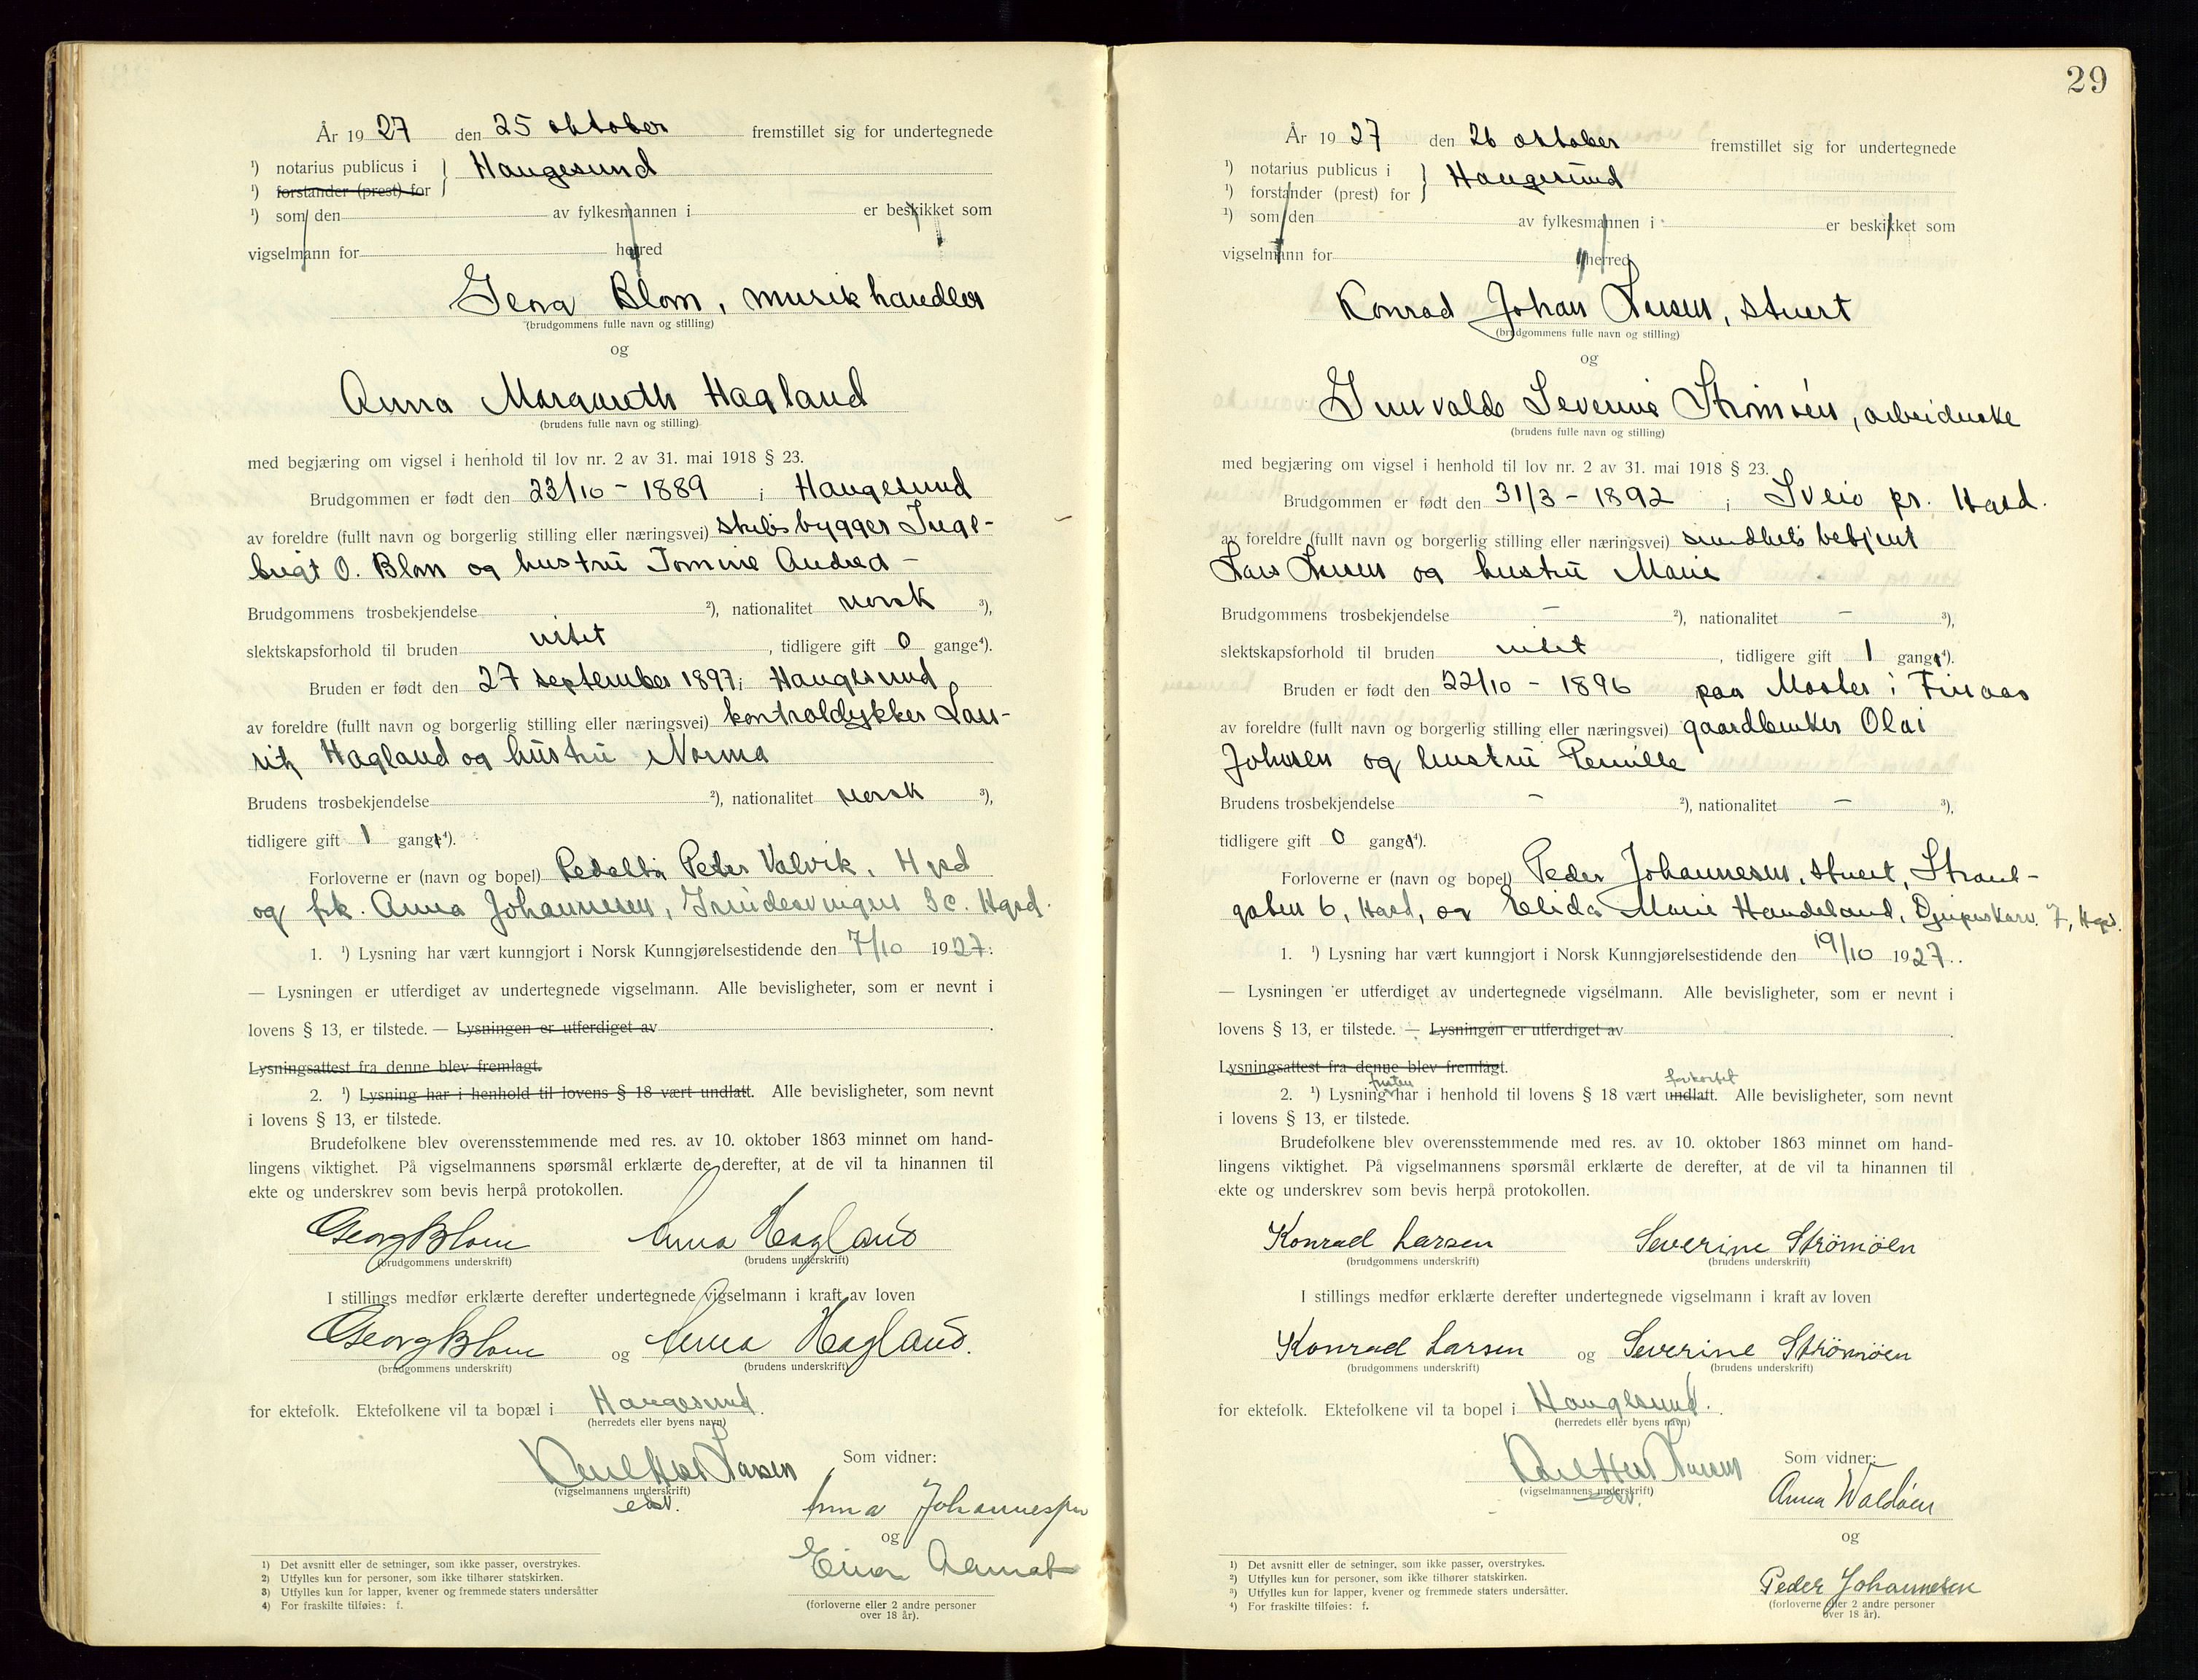 År 1927 den 25 oktober fremstillet sig for undertegnede
¹) notarius publicus i } Haugesund
¹) forstander (prest) for
¹) som den av fylkesmannen i er beskikket som
vigselmann for herred
Georg Blom, musikhandler
(brudgommens fulle navn og stilling)
og
Anna Margareth Hagland
(brudens fulle navn og stilling)
med begjæring om vigsel i henhold til lov nr. 2 av 31. mai 1918 § 23.
Brudgommen er født den 23/10 - 1889 i Haugesund
av foreldre (fullt navn og borgerlig stilling eller næringsvei) skibsbygger Inge-
brigt O. Blom og hustru Tomine Andrea -
Brudgommens trosbekjendelse ²), nationalitet norsk ³),
slektskapsforhold til bruden intet, tidligere gift 0 gange⁴).
Bruden er født den 27 september 1897 i Haugesund
av foreldre (fullt navn og borgerlig stilling eller næringsvei) kontroldykker Lau-
ritz Hagland og hustru Norma
Brudens trosbekjendelse ²), nationalitet norsk ³),
tidligere gift 1 gange⁴).
Forloverne er (navn og bopel) Peder Valvik, Hgsd
og frk. Anna Johannesen, 5c. Hgsd.
1. ¹) Lysning har vært kunngjort i Norsk Kunngjørelsestidende den 7/10 1927.
— Lysningen er utferdiget av undertegnede vigselmann. Alle bevisligheter, som er nevnt i
lovens § 13, er tilstede. — Lysningen er utferdiget av .
Lysningsattest fra denne blev fremlagt.
2. ¹) Lysning har i henhold til lovens § 18 vært undlatt. Alle bevisligheter, som nevnt
i lovens § 13, er tilstede.
Brudefolkene blev overensstemmende med res. av 10. oktober 1863 minnet om hand-
lingens viktighet. På vigselmannens spørsmål erklærte de derefter, at de vil ta hinannen til
ekte og underskrev som bevis herpå protokollen.
Georg Blom Anna Hagland
(brudgommens underskrift) (brudens underskrift)
I stillings medfør erklærte derefter undertegnede vigselmann i kraft av loven
Georg Blom og Anna Hagland.
(brudgommens underskrift) (brudens underskrift)
for ektefolk. Ektefolkene vil ta bopæl i Haugesund.
(herredets eller byens navn)
Larsen Som vidner:
(vigselmannens underskrift)
Anna Johannesen
og
Einar
(forloverne eller 2 andre personer
over 18 år).
1) Det avsnitt eller de setninger, som ikke passer, overstrykes.
2) Utfylles kun for personer, som ikke tilhører statskirken.
3) Utfylles kun for lapper, kvener og fremmede staters undersåtter
4) For fraskilte tilføies: f.
29
År 1927 den 26 oktober fremstillet sig for undertegnede
¹) notarius publicus i } Haugesund
¹) forstander (prest) for
¹) som den av fylkesmannen i er beskikket som
vigselmann for herred
Konrad Johan Larsen, stuert
(brudgommens fulle navn og stilling)
og
Gunvalda Severine Strømøen, arbeiderske
(brudens fulle navn og stilling)
med begjæring om vigsel i henhold til lov nr. 2 av 31. mai 1918 § 23.
Brudgommen er født den 31/3 - 1892 i Sveio pr. Hgsd.
av foreldre (fullt navn og borgerlig stilling eller næringsvei) sundhetsbetjent
Lars Larsen og hustru Marie
Brudgommens trosbekjendelse - ²), nationalitet - ³),
slektskapsforhold til bruden intet, tidligere gift 1 gange⁴).
Bruden er født den 22/10 - 1896 paa Moster i Finaas
av foreldre (fullt navn og borgerlig stilling eller næringsvei) gaardbruker Olai
Johnsen og hustru Pernille
Brudens trosbekjendelse - ²), nationalitet - ³),
tidligere gift 0 gange⁴).
Forloverne er (navn og bopel) Peder Johannesen, stuert, Strand-
gaten 6, Hgsd, og Elida Marie Handeland, 7, Hgsd.
1. ¹) Lysning har vært kunngjort i Norsk Kunngjørelsestidende den 19/10 1927.
— Lysningen er utferdiget av undertegnede vigselmann. Alle bevisligheter, som er nevnt i
lovens § 13, er tilstede. — Lysningen er utferdiget av .
Lysningsattest fra denne blev fremlagt.
fristen forkortet
2. ¹) Lysning har i henhold til lovens § 18 vært undlatt. Alle bevisligheter, som nevnt
i lovens § 13, er tilstede.
Brudefolkene blev overensstemmende med res. av 10. oktober 1863 minnet om hand-
lingens viktighet. På vigselmannens spørsmål erklærte de derefter, at de vil ta hinannen til
ekte og underskrev som bevis herpå protokollen.
Konrad Larsen Severine Strömöen
(brudgommens underskrift) (brudens underskrift)
I stillings medfør erklærte derefter undertegnede vigselmann i kraft av loven
Konrad Larsen og Severine Strömöen
(brudgommens underskrift) (brudens underskrift)
for ektefolk. Ektefolkene vil ta bopel i Haugesund.
(herredets eller byens navn)
Larsen Som vidner:
(vigselmannens underskrift)
Anna Waldöen
og
Peder Johannesen
(forloverne eller 2 andre personer
over 18 år).
¹) Det avsnitt eller de setninger, som ikke passer, overstrykes.
²) Utfylles kun for personer, som ikke tilhører statskirken.
³) Utfylles kun for lapper, kvener og fremmede staters undersåtter.
⁴) For fraskilte tilføies: f.